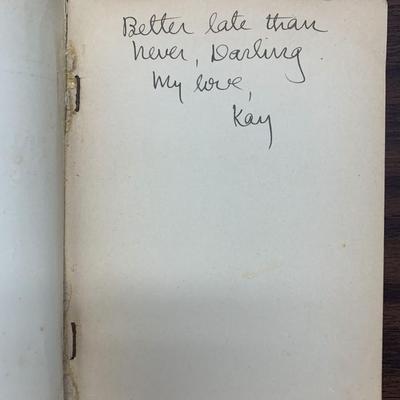 Better late than
never, Darling.
My love,
Kay